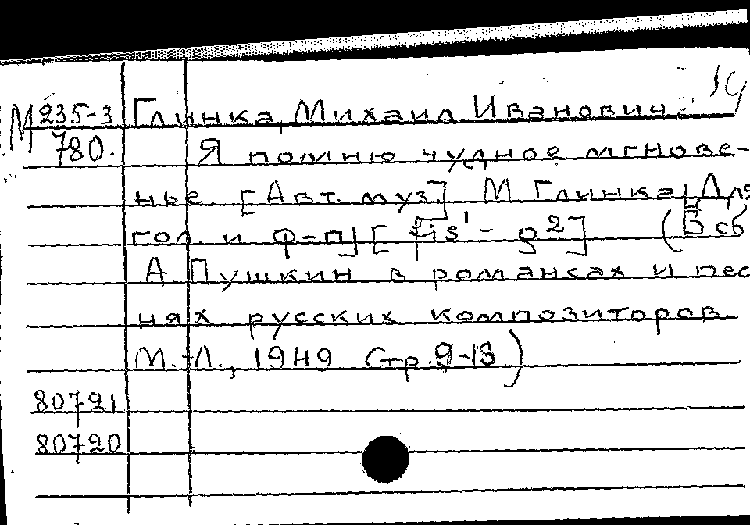 М 235-3 Глинка, Михаил Иванович. 14
780. Я помню чудное мгнове-
нье. [Авт. муз.] М. Глинка. Для
гол. и ф-п] [fis¹ - g²] (В сб
А. Пушкин в романсах и пес
нях русских композиторов
М.-Л., 1949 Стр. 9-13)
80721
80720